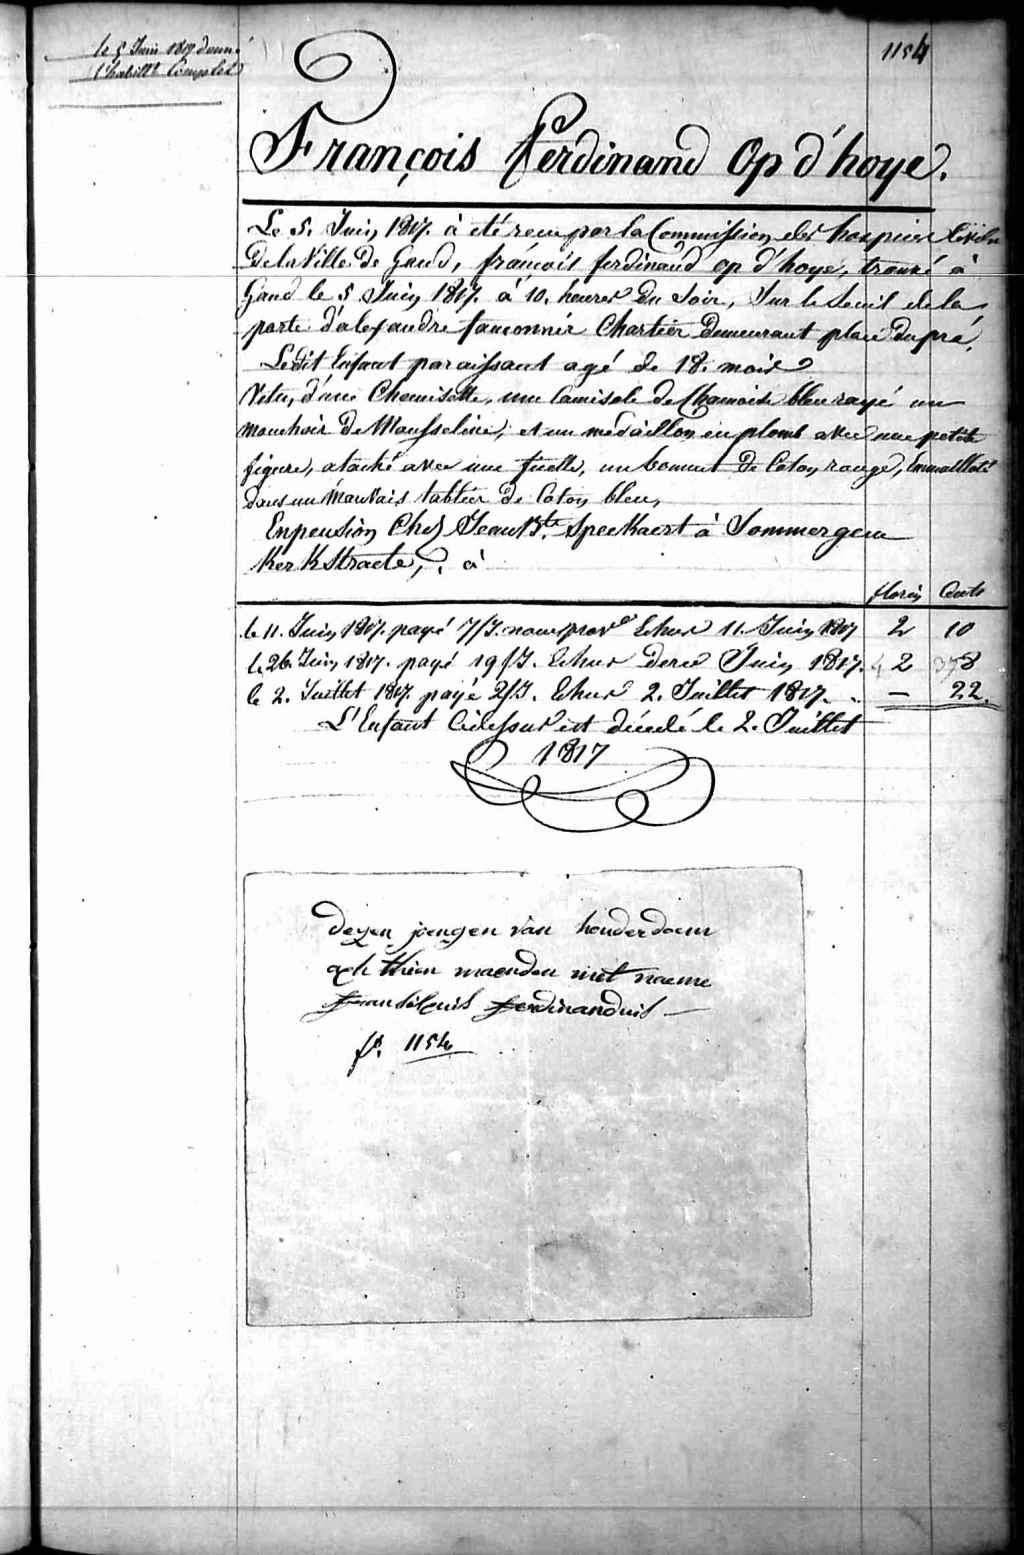 le 5 Juin 1817 donné
l'habillt Complet
1154
François Ferdinand Op d'hoye.
Le 5. Juin 1817. à été recu par la Commission des hospices Civils
De la Ville de Gand, françois ferdinand op d'hoye, trouvé à
Gand le 5 Juin 1817. à 10. heures du Soir, Sur le Seuil de la
porte d'alexandre fauconnir Chartier Demeurant place Du pré.
Le dit Enfant paraissant agé de 18. mois
Vetu, d'une Chemisette, une Camisole de Chamoise bleu rayé un
mouchoir De Mousseline, et un médaillon en plomb avec une petite
figure, ataché avec une ficelle, un bonnet De Coton rouge, Emmailloté
dans un Mauvais tablier de Coton bleu,
En pension Chez Jean Bte Speekaert à Sommergem
Kerkstraete, à
florin Cents
le 11. Juin 1817. payé 7/J. Echus 11. Juin 1817 2 10
le 26. Juin 1817. payé 19/J. Echus Juin 1817. 2 78
le 2. Juillet 1817. payé 2/J. Echus 2. Juillet 1817. — 22.
L'Enfant Cidessus est décédé le 2. Juillet
1817
dezen jongen van houderdom
ach thien maenden met naeme
Fransiscuis Ferdinanduis —
fo. 1154